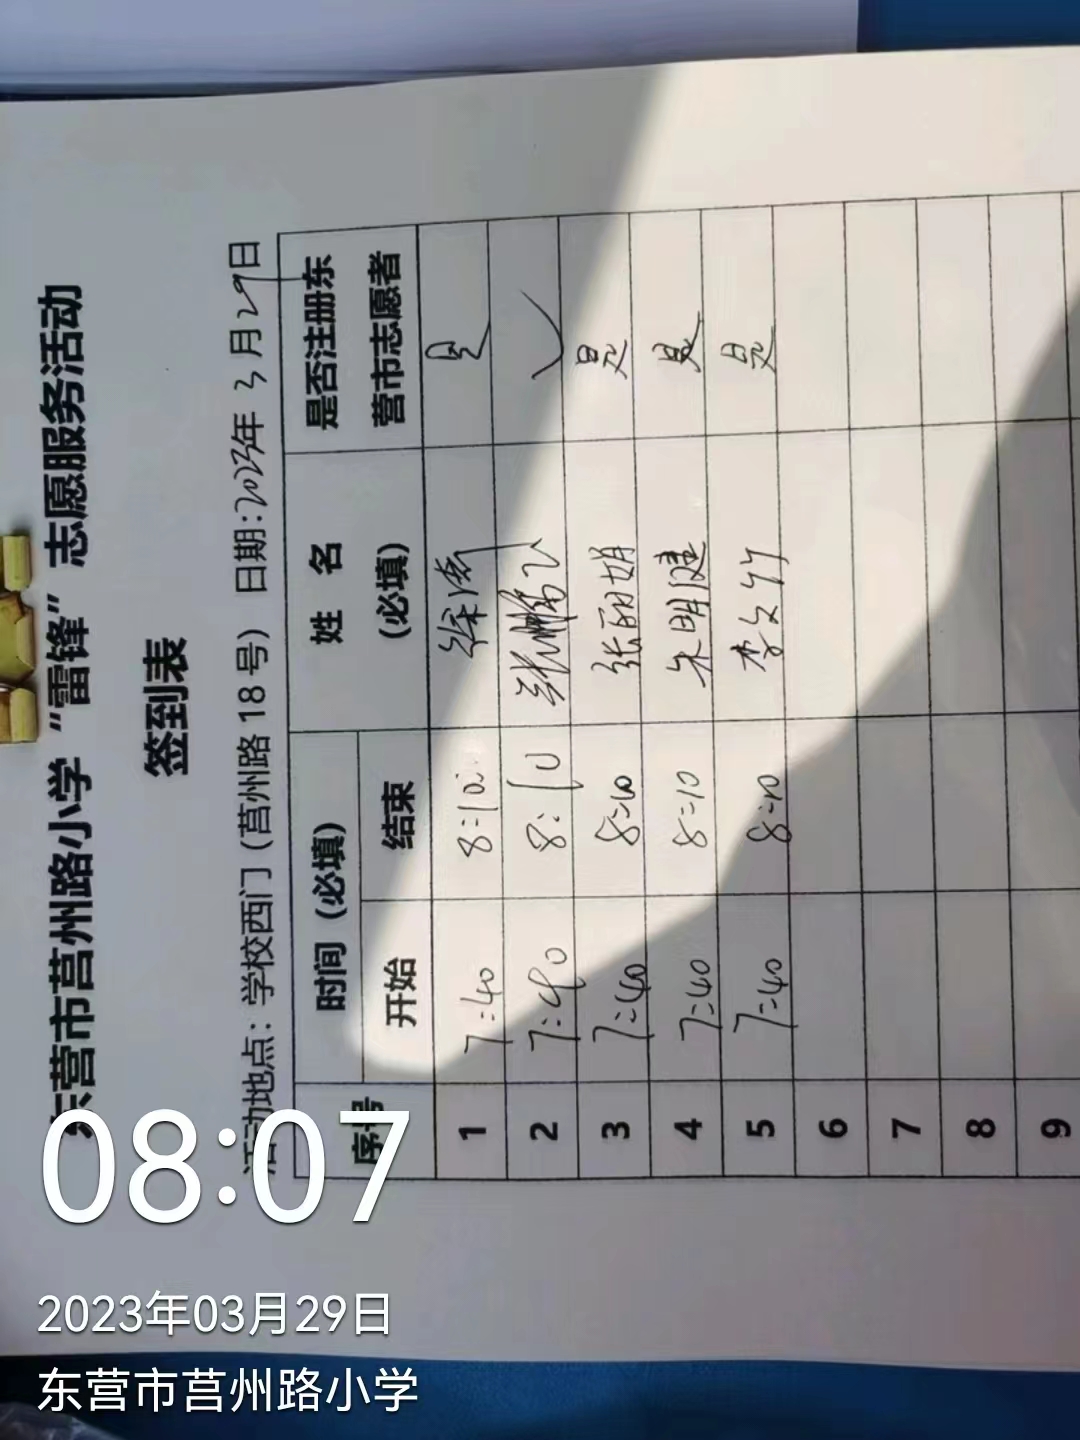 东营市莒州路小学“雷锋”志愿服务活动
签到表
活动地点：学校西门（莒州路18号） 日期:2023年3月29日
序号 时间（必填） 姓 名（必填） 是否注册东营市志愿者
开始 结束
1 7:40 8:10 徐 是
2 7:40 8:10 张鹏飞 ✓
3 7:40 8:10 张丽娟 是
4 7:40 8:10 朱明健 是
5 7:40 8:10 李文 是
6
7
8
9
08:07
2023年03月29日
东营市莒州路小学